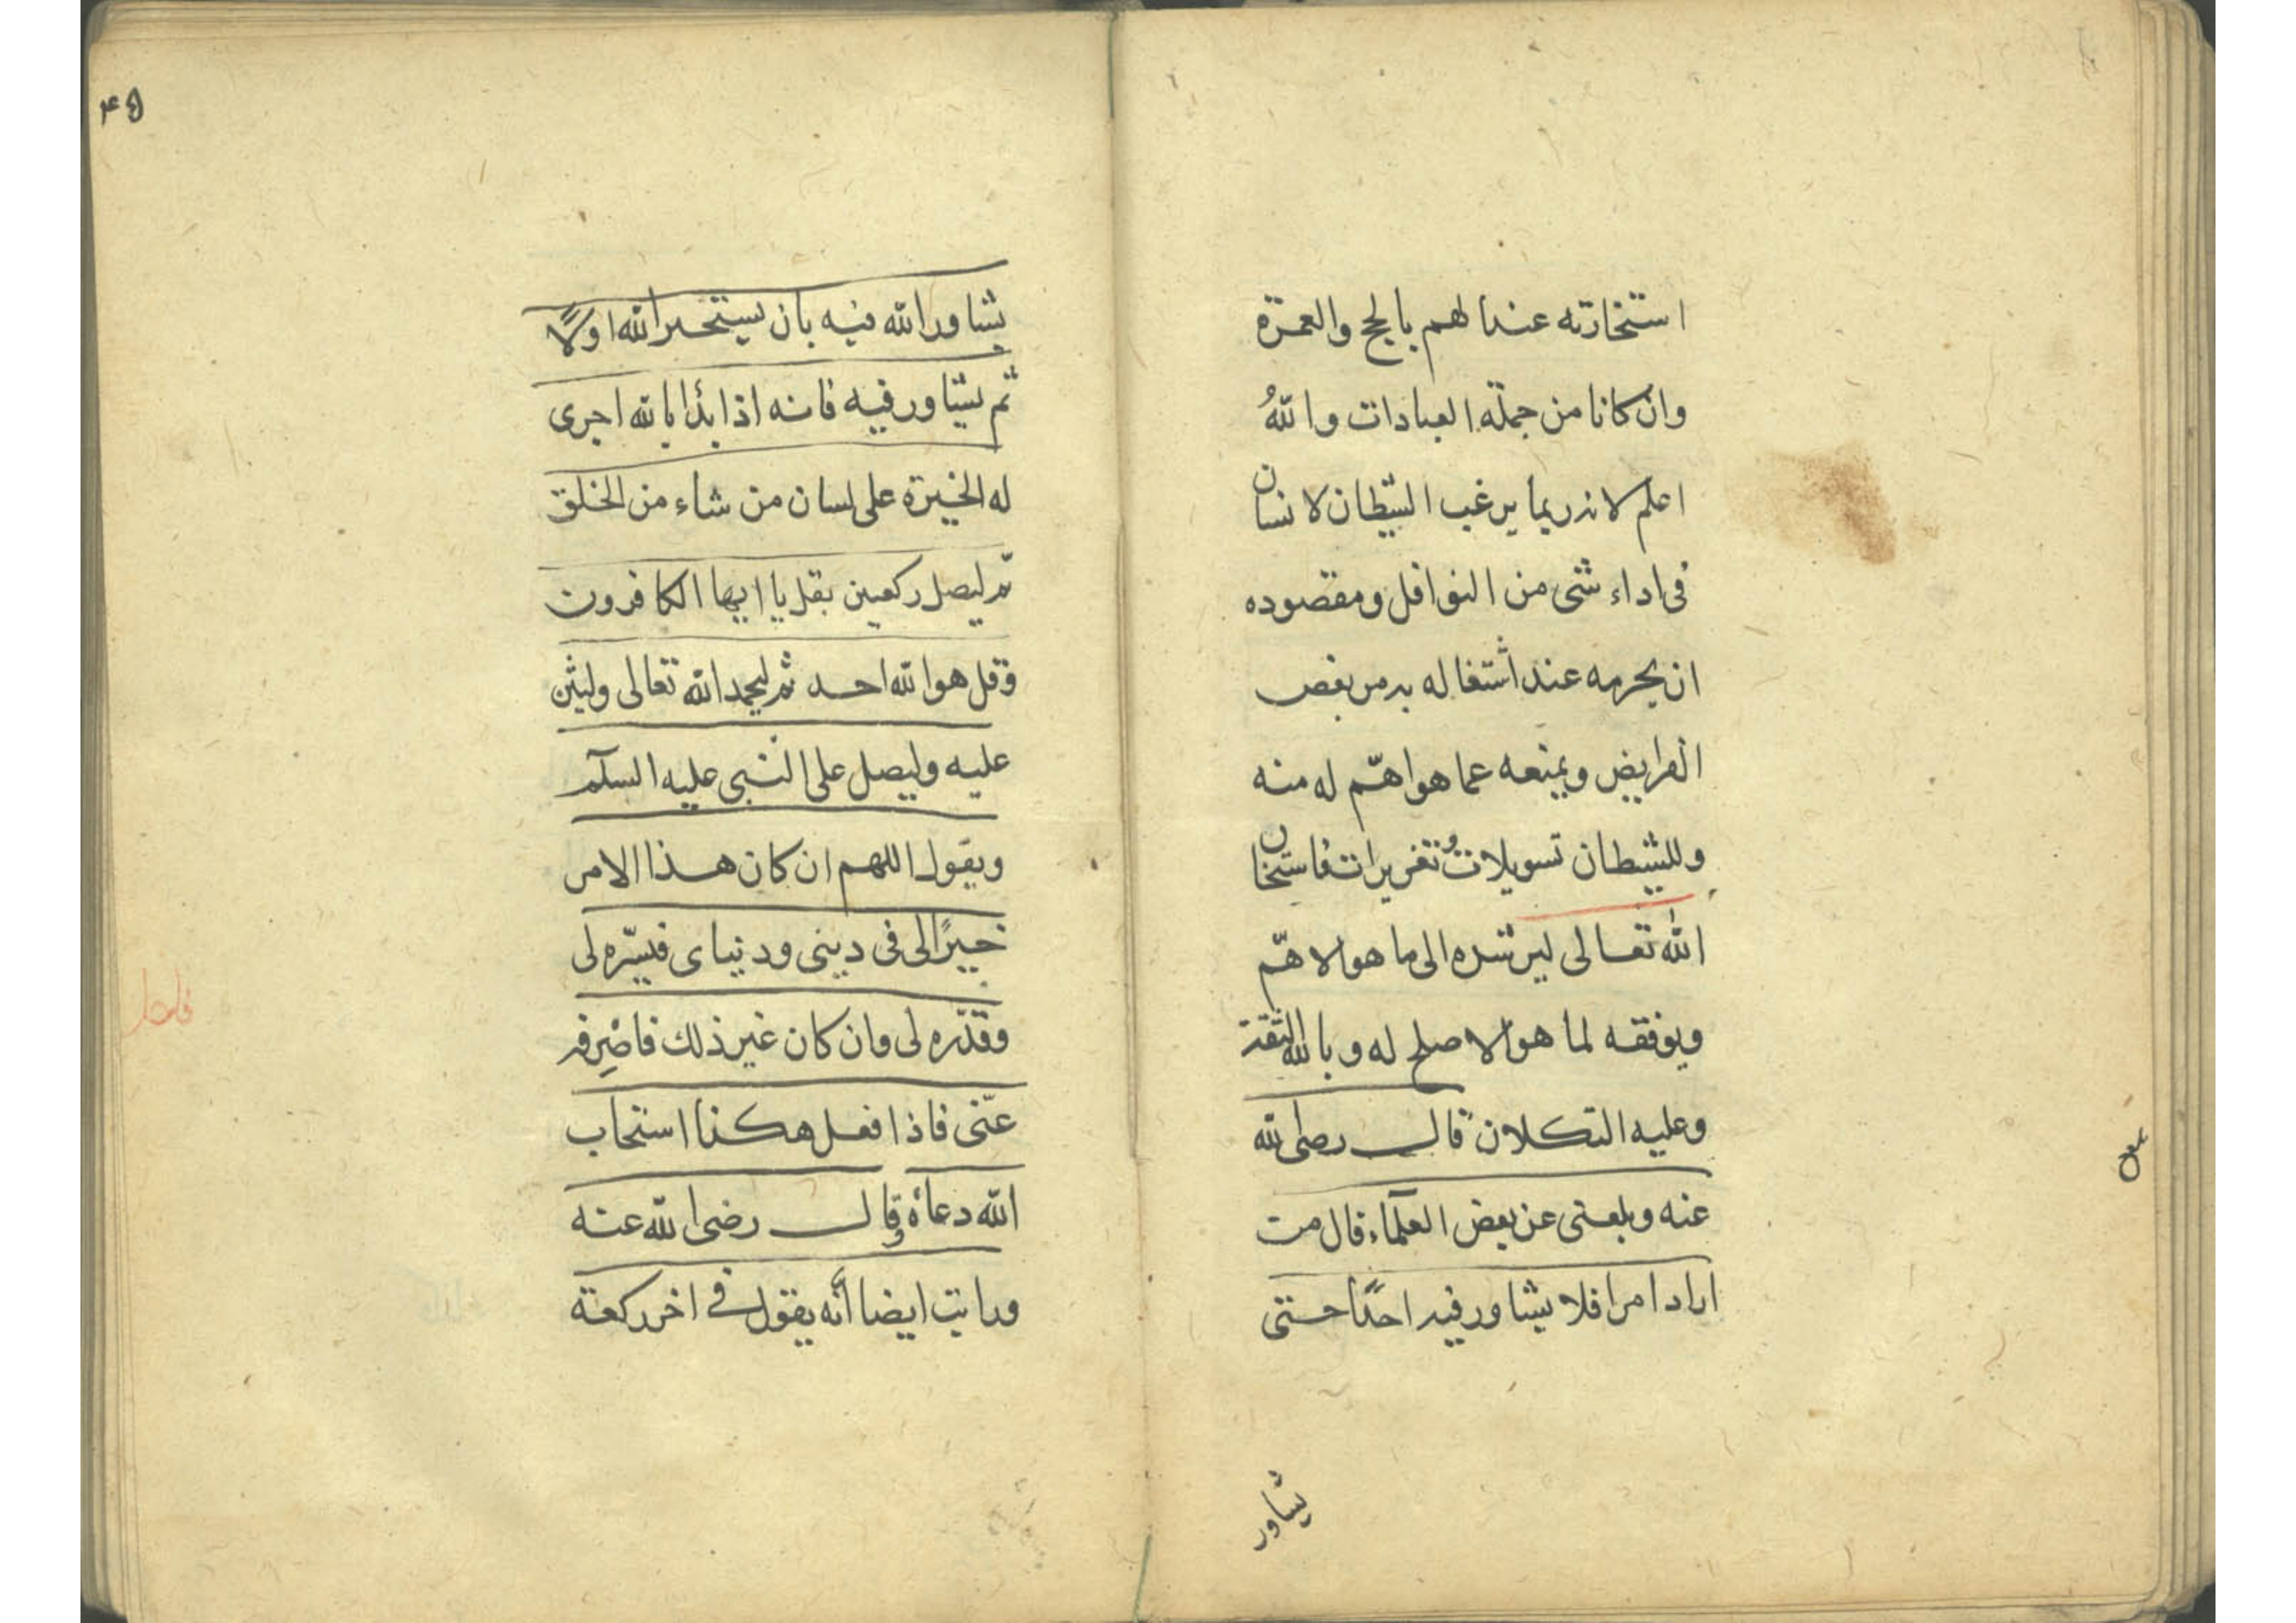 استخارته عندا لهم بالحج والعمرة
وان كانا من جملة العبادات واللهُ
اعلم لانه ربما يرغب الشيطان لانسان
فى اداء شئ من النوافل ومقصوده
ان يحرمه عند اشتغاله به من بعض
الفرايض ويمنعه عما هو اهّم له منه
وللشيطان تسويلات وتغريرات فاستخان
الله تعالى ليرشده الى ما هو الاهّم
ويوفقه لما هو الاصلح له وبالله الثقة
وعليه التكلان قال رضى الله
عنه وبلغنى عن بعض العلماء قال من
اراد امرا فلا يشاور فيه احدًا حتى
يشاور
يشاور الله فيه بان يستخير الله اولًا
ثم يشاور فيه فانه اذا بدأ بالله اجرى
له الخيرة على لسان من شاء من الخلق
ثم ليصل ركعتين بقل يا ايها الكافرون
وقل هو الله احد ثم ليحمد الله تعالى وليثن
عليه وليصل على النبى عليه السلم
ويقول اللهم ان كان هذا الامر
خيرًا لى فى دينى ودنياى فيسّره لى
وقدّره لى وان كان غير ذلك فاصْرِفه
عنّى فاذا فعل هكذا استجاب
الله دعاه وقال رضى الله عنه
ورايت ايضا انّه يقول فى اخر ركعة